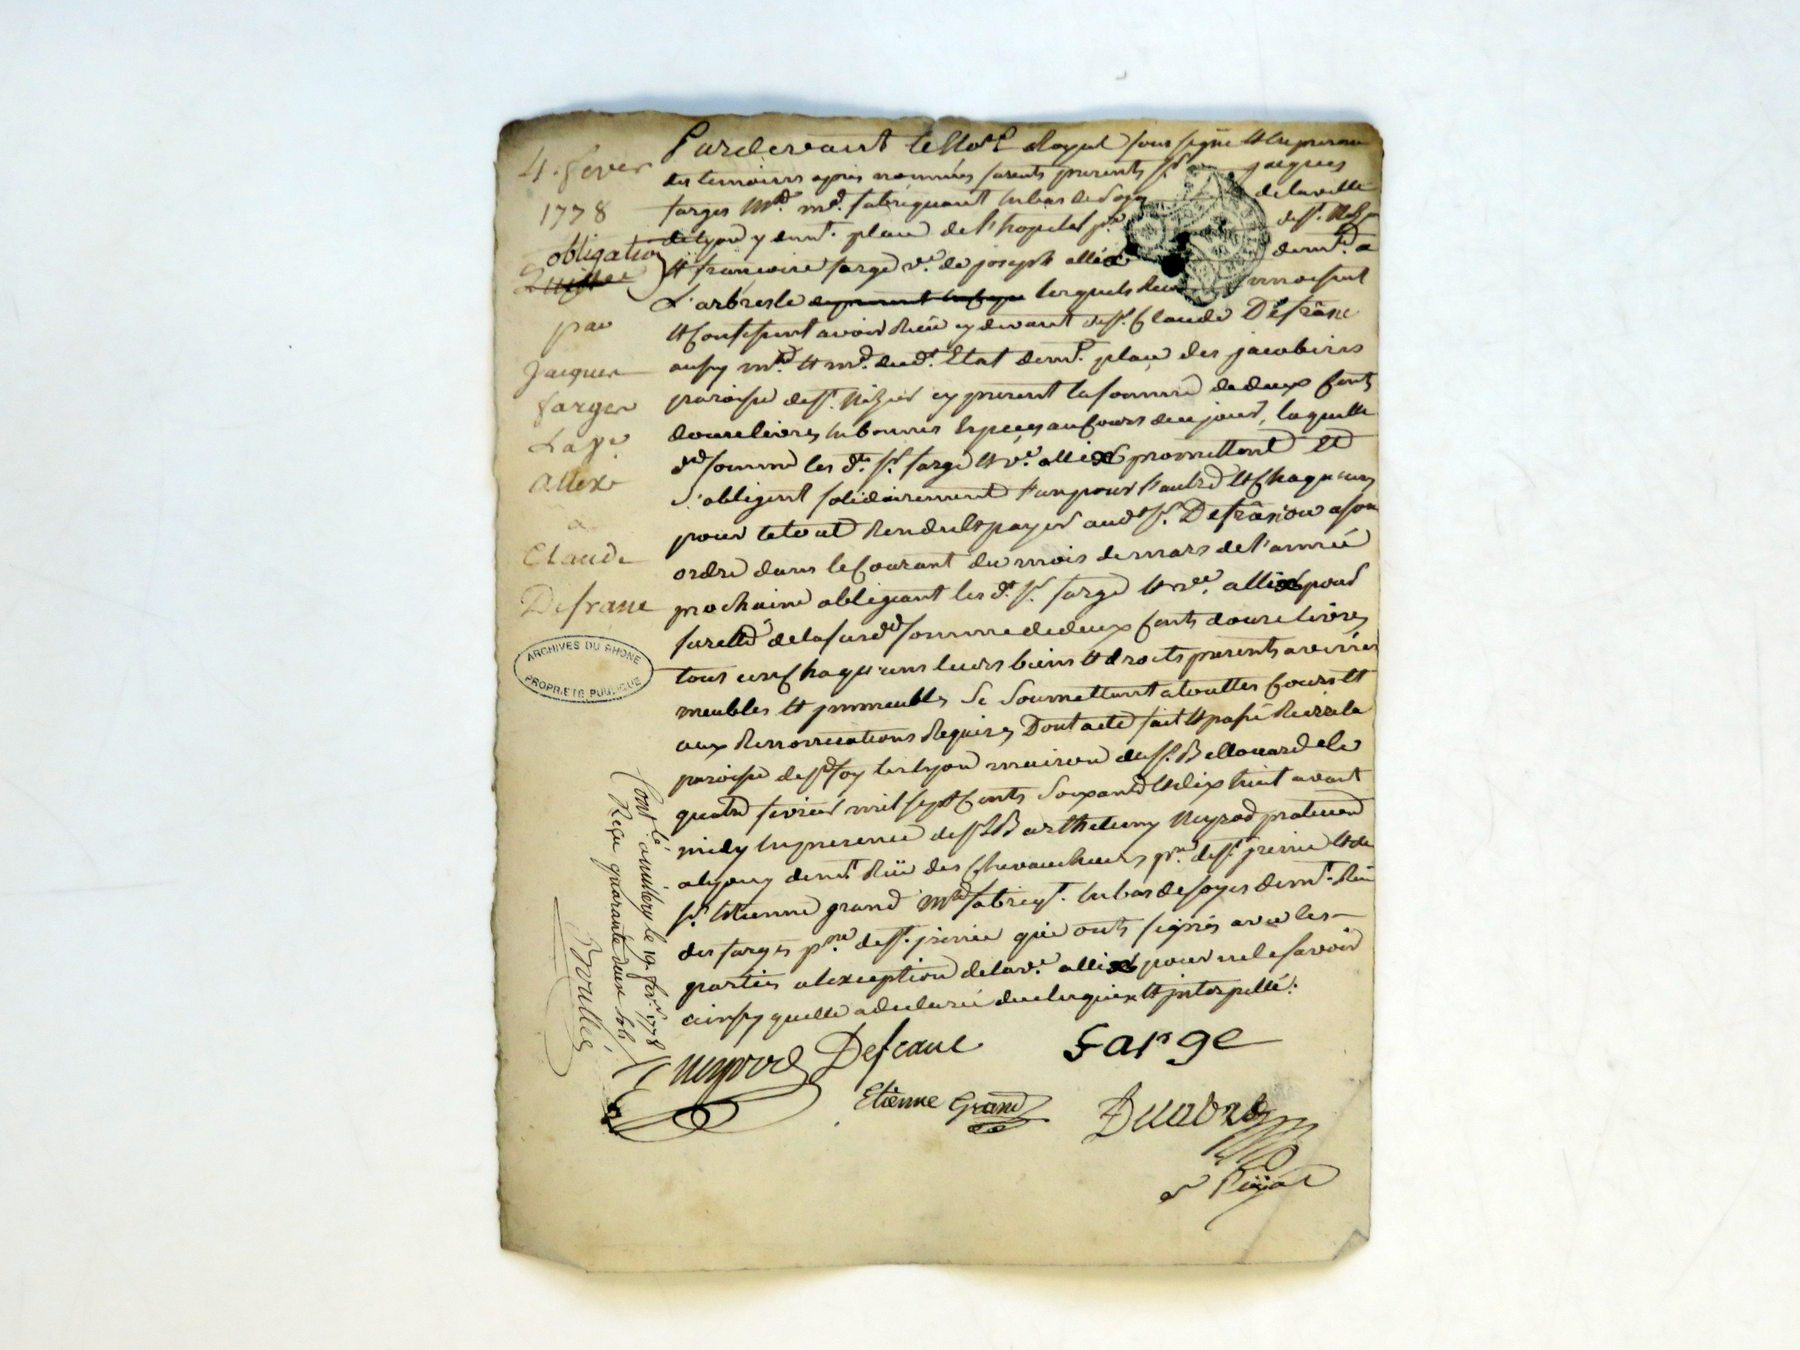 4. fevr
1778
obligation
par
Jacques
farge
La Ve
allex
a
Claude
Defrane
ARCHIVES DU RHONE
PROPRIETE PUBLIQUE
Cont. lé a le 19 fevr. 1778
Reçu quarante deux sols
Pardevant le No.re Royal soussigné et en presence
des temoins apres nommées furent presents sr. jacques
farges md. fabriquant en bas de soye de la ville
de Lyon y demt. place de l'hopital pse. de st. Niz
et françoise farge ve. de joseph allex demte. a
L'arbresle lesquels noissent
et Confessent avoir Recu cy devant du sr. Claude Defrane
aussy md. et md. dud. Etat demt. place des jacobins
paroisse de st. Nizier cy present la somme de deux Cents
douze livres en bonnes Especes au Cours de ce jour, laquelle
de somme les d. sr. farge et ve. allex promettent et
s'obligent solidairement l'un pour l'autre et Chaqu'un
pour le tout Rendre et payer aud. sr. Defrane ou a son
ordre dans le Courant du mois de mars de l'année
prochaine obligeant les d. sr. farge et ve. allex pour
sureté de la susde somme de deux Cents douze livres
tous un Chaqu'uns leurs biens et droits presents avenir
meubles et immeubles se soumettant a touttes Cours et
aux Renonciations Requises Dont acte fait et passé Riere la
paroisse de ste foy les lyon maison du sr. Bellouard le
quatre fevrier mil sept Cents soixante et dix huit avant
midy en presence de sr. Barthelemy Neyrod praticien
a Lyon y demt. Rüe des Chevaucheurs pse. de st. jrenée et de
sr. Etienne grand md. fabriqt. en bas de soyes demt. Rüe
des farges pse. de st. jrenée qui ont signés avec les
parties a l'exception de la ve. allex pour ne le savoir
ainsy qu'elle a declaré de ce Enquise et jnterpellé.
Neyrod Defrane farge
Etienne Grand